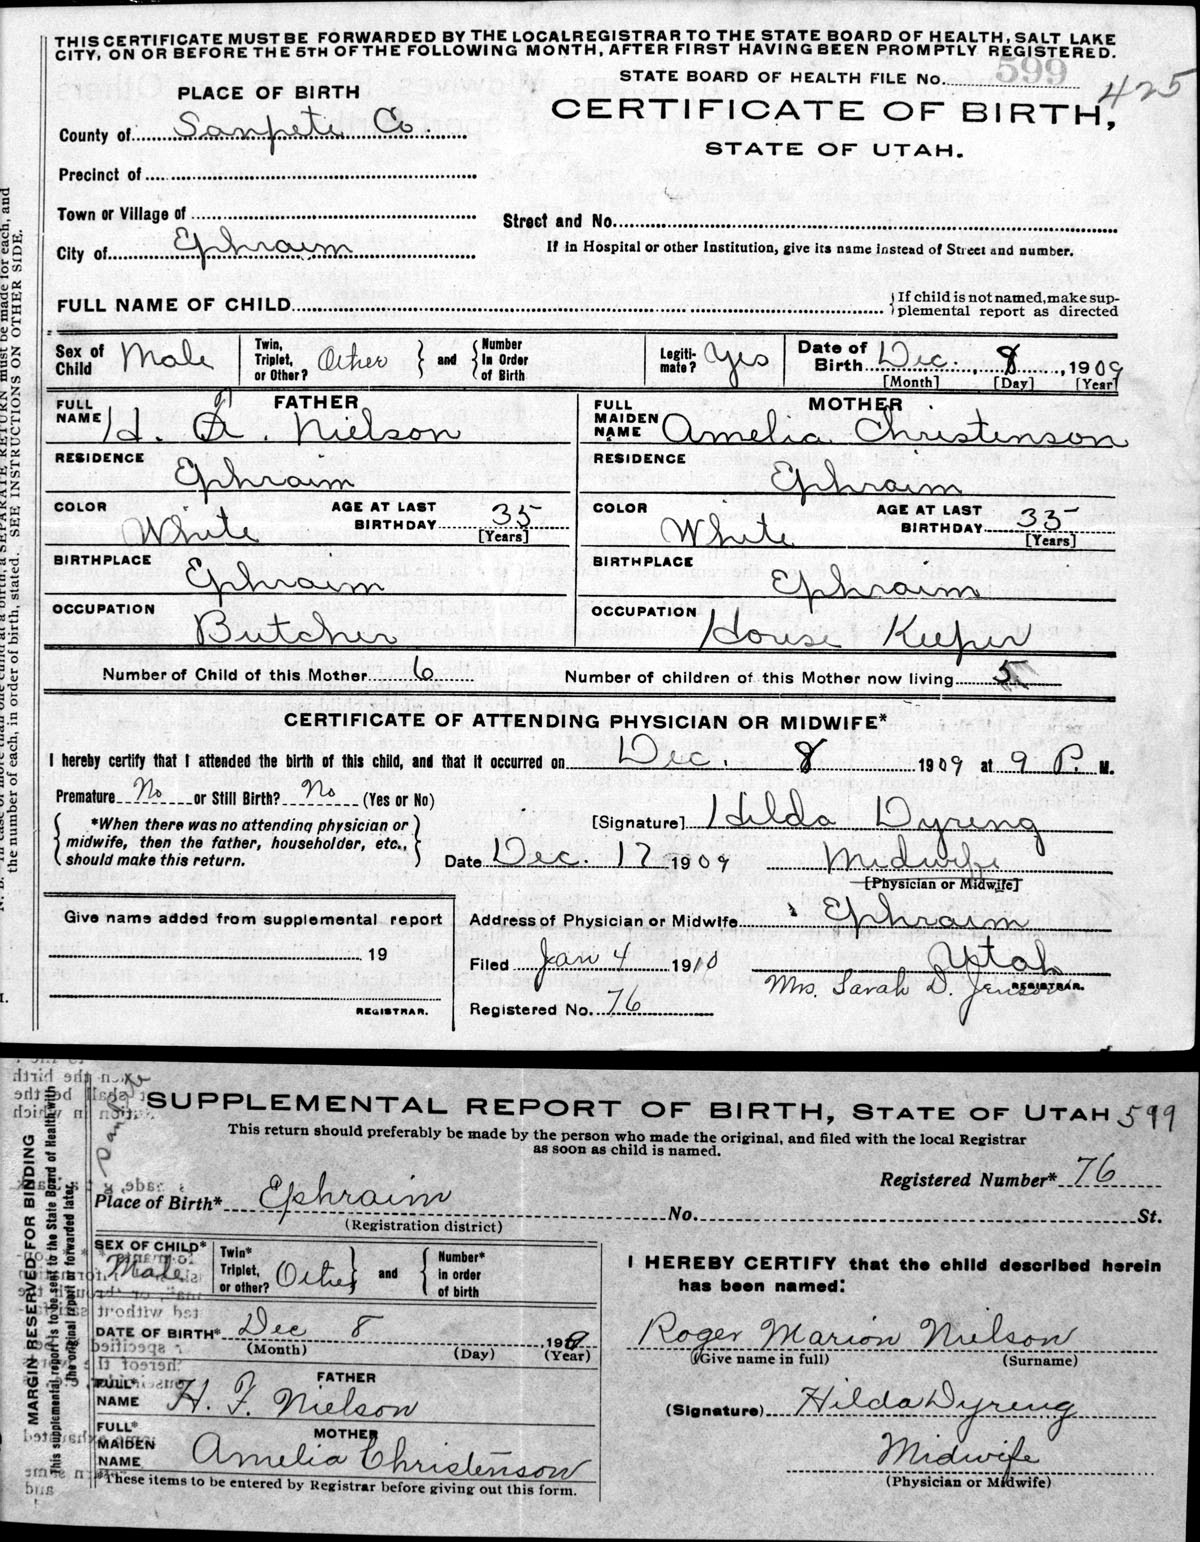 THIS CERTIFICATE MUST BE FORWARDED BY THE LOCAL REGISTRAR TO THE STATE BOARD OF HEALTH, SALT LAKE
CITY, ON OR BEFORE THE 5TH OF THE FOLLOWING MONTH, AFTER FIRST HAVING BEEN PROMPTLY REGISTERED.
STATE BOARD OF HEALTH FILE No. 599
425
PLACE OF BIRTH
CERTIFICATE OF BIRTH,
STATE OF UTAH.
County of Sanpete Co.
Precinct of
Town or Village of
Street and No.
City of Ephraim
If in Hospital or other Institution, give its name instead of Street and number.
FULL NAME OF CHILD
If child is not named, make sup-
plemental report as directed
Sex of Child Male Twin, Triplet, or Other? Other and Number In Order of Birth Legiti-mate? Yes Date of Birth Dec. 8, 1909
[Month] [Day] [Year]
FATHER
FULL NAME H. F. Nielson
RESIDENCE Ephraim
COLOR White AGE AT LAST BIRTHDAY 35 [Years]
BIRTHPLACE Ephraim
OCCUPATION Butcher
MOTHER
FULL MAIDEN NAME Amelia Christenson
RESIDENCE Ephraim
COLOR White AGE AT LAST BIRTHDAY 33 [Years]
BIRTHPLACE Ephraim
OCCUPATION House Keeper
Number of Child of this Mother 6 Number of children of this Mother now living 5
CERTIFICATE OF ATTENDING PHYSICIAN OR MIDWIFE*
I hereby certify that I attended the birth of this child, and that it occurred on Dec. 8 1909 at 9 P. M.
Premature No or Still Birth? No (Yes or No)
*When there was no attending physician or
midwife, then the father, householder, etc.,
should make this return.
[Signature] Hilda Dyreng
Date Dec. 17 1909 Midwife
[Physician or Midwife]
Give name added from supplemental report
19
REGISTRAR.
Address of Physician or Midwife Ephraim
Utah
Filed Jan 4 1910
Mrs. Sarah D. Jenson REGISTRAR.
Registered No. 76
the number of each, in order of birth, stated. SEE INSTRUCTIONS ON OTHER SIDE.
SUPPLEMENTAL REPORT OF BIRTH, STATE OF UTAH 599
This return should preferably be made by the person who made the original, and filed with the local Registrar
as soon as child is named.
Registered Number* 76
Place of Birth* Ephraim No. St.
(Registration district)
SEX OF CHILD* Male Twin* Triplet, or other? Other and Number* in order of birth
DATE OF BIRTH* Dec 8 1909
(Month) (Day) (Year)
FATHER
FULL* NAME H. F. Nielson
MOTHER
FULL* MAIDEN NAME Amelia Christenson
*These items to be entered by Registrar before giving out this form.
I HEREBY CERTIFY that the child described herein
has been named:
Roger Marion Nielson
(Give name in full) (Surname)
(Signature) Hilda Dyreng
Midwife
(Physician or Midwife)
MARGIN RESERVED FOR BINDING
This supplemental report is to be sent to the State Board of Health with
the original report if forwarded later.